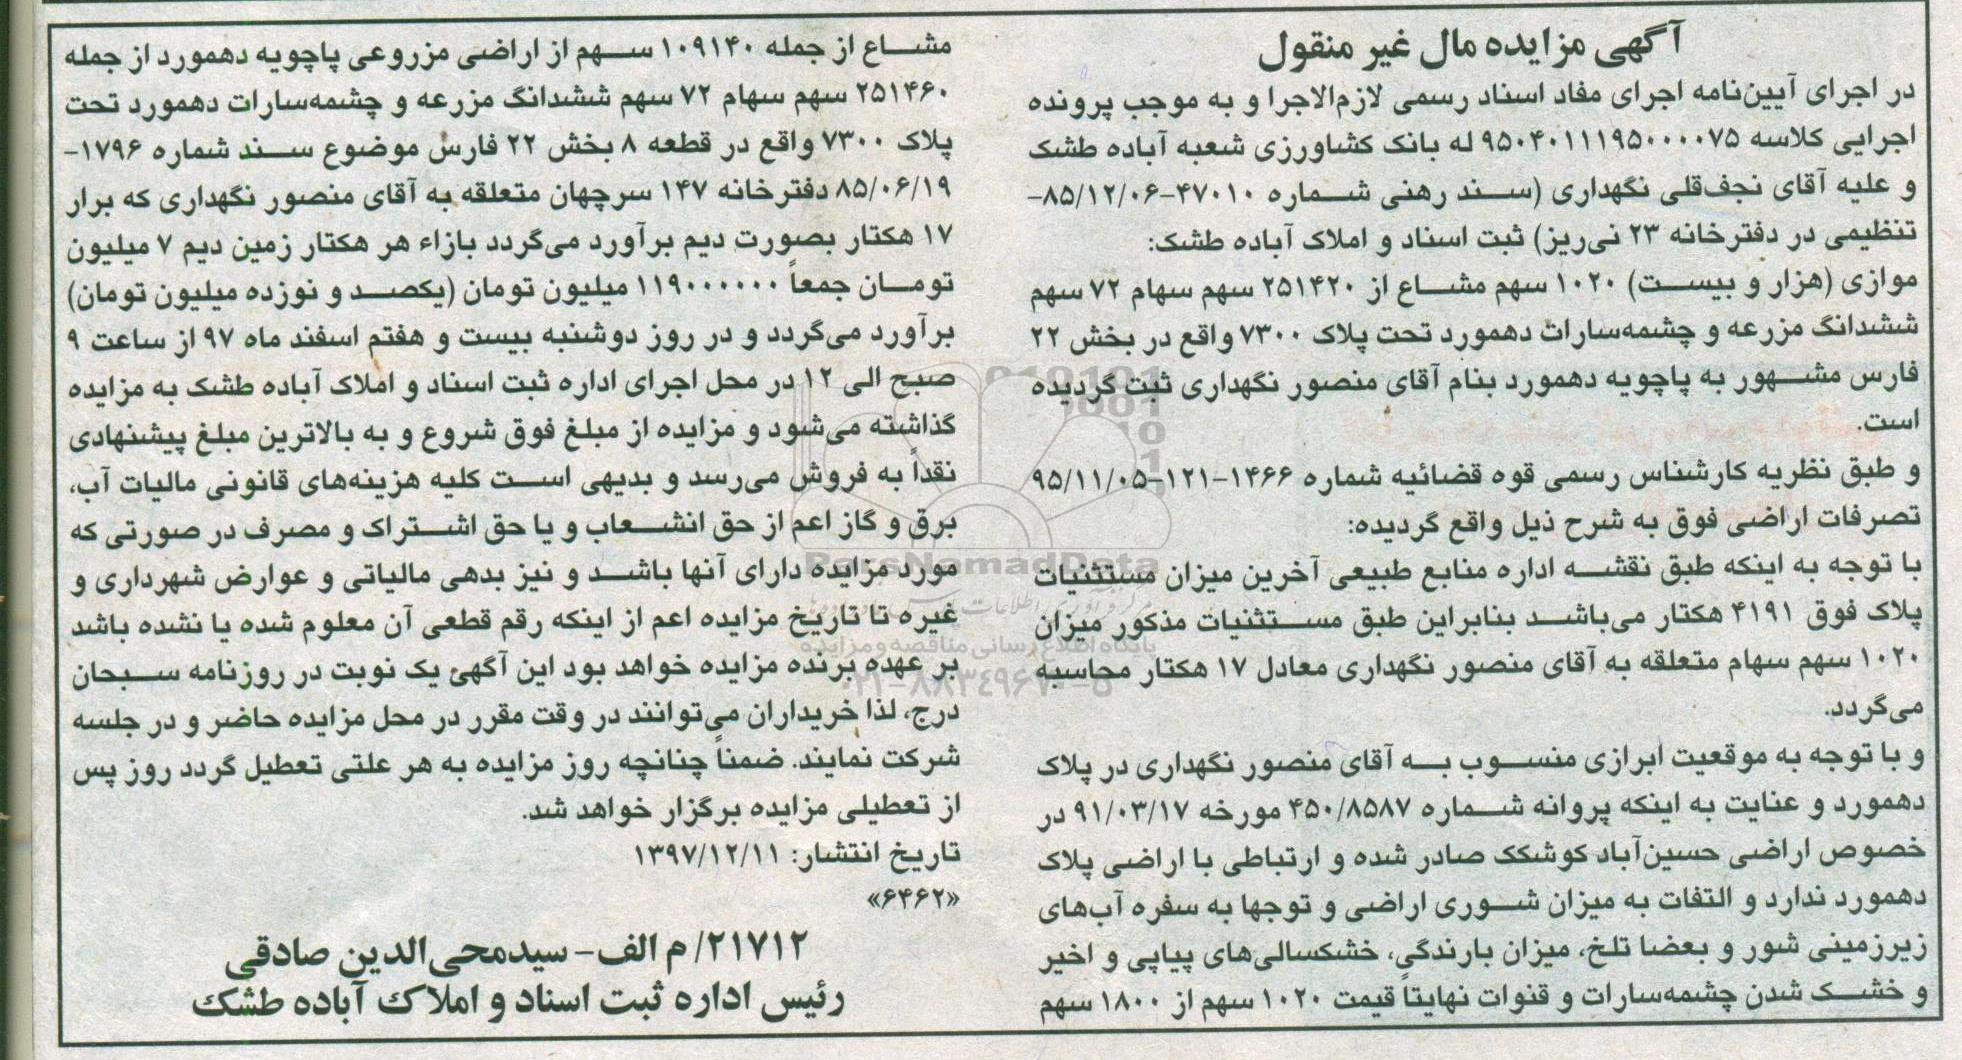 آگهی مزایده مال غیر منقول
در اجرای آیین‌نامه اجرای مفاد اسناد رسمی لازم‌الاجرا و به موجب پرونده
اجرایی کلاسه ۹۵۰۴۰۱۱۱۹۵۰۰۰۰۷۵ له بانک کشاورزی شعبه آباده طشک
و علیه آقای نجف‌قلی نگهداری (سند رهنی شماره ۴۷۰۱۰-۸۵/۱۲/۰۶-
تنظیمی در دفترخانه ۲۳ نی‌ریز) ثبت اسناد و املاک آباده طشک:
موازی (هزار و بیست) ۱۰۲۰ سهم مشاع از ۲۵۱۴۲۰ سهم سهام ۷۲ سهم
ششدانگ مزرعه و چشمه‌سارات دهمورد تحت پلاک ۷۳۰۰ واقع در بخش ۲۲
فارس مشهور به پاچویه دهمورد بنام آقای منصور نگهداری ثبت گردیده
است.
و طبق نظریه کارشناس رسمی قوه قضائیه شماره ۱۴۶۶-۱۲۱-۹۵/۱۱/۰۵
تصرفات اراضی فوق به شرح ذیل واقع گردیده:
با توجه به اینکه طبق نقشه اداره منابع طبیعی آخرین میزان مستثنیات
پلاک فوق ۴۱۹۱ هکتار می‌باشد بنابراین طبق مستثنیات مذکور میزان
۱۰۲۰ سهم سهام متعلقه به آقای منصور نگهداری معادل ۱۷ هکتار محاسبه
می‌گردد.
و با توجه به موقعیت ابرازی منسوب به آقای منصور نگهداری در پلاک
دهمورد و عنایت به اینکه پروانه شماره ۴۵۰/۸۵۸۷ مورخه ۹۱/۰۳/۱۷ در
خصوص اراضی حسین‌آباد کوشکک صادر شده و ارتباطی با اراضی پلاک
دهمورد ندارد و التفات به میزان شوری اراضی و توجها به سفره آب‌های
زیرزمینی شور و بعضا تلخ، میزان بارندگی، خشکسالی‌های پیاپی و اخیر
و خشک شدن چشمه‌سارات و قنوات نهایتاً قیمت ۱۰۲۰ سهم از ۱۸۰۰ سهم
مشاع از جمله ۱۰۹۱۴۰ سهم از اراضی مزروعی پاچویه دهمورد از جمله
۲۵۱۴۶۰ سهم سهام ۷۲ سهم ششدانگ مزرعه و چشمه‌سارات دهمورد تحت
پلاک ۷۳۰۰ واقع در قطعه ۸ بخش ۲۲ فارس موضوع سند شماره ۱۷۹۶-
۸۵/۰۶/۱۹ دفترخانه ۱۴۷ سرچهان متعلقه به آقای منصور نگهداری که برار
۱۷ هکتار بصورت دیم برآورد می‌گردد بازاء هر هکتار زمین دیم ۷ میلیون
تومان جمعاً ۱۱۹۰۰۰۰۰۰ میلیون تومان (یکصد و نوزده میلیون تومان)
برآورد می‌گردد و در روز دوشنبه بیست و هفتم اسفند ماه ۹۷ از ساعت ۹
صبح الی ۱۲ در محل اجرای اداره ثبت اسناد و املاک آباده طشک به مزایده
گذاشته می‌شود و مزایده از مبلغ فوق شروع و به بالاترین مبلغ پیشنهادی
نقداً به فروش می‌رسد و بدیهی است کلیه هزینه‌های قانونی مالیات آب،
برق و گاز اعم از حق انشعاب و یا حق اشتراک و مصرف در صورتی که
مورد مزایده دارای آنها باشد و نیز بدهی مالیاتی و عوارض شهرداری و
غیره تا تاریخ مزایده اعم از اینکه رقم قطعی آن معلوم شده یا نشده باشد
بر عهده برنده مزایده خواهد بود این آگهئ یک نوبت در روزنامه سبحان
درج، لذا خریداران می‌توانند در وقت مقرر در محل مزایده حاضر و در جلسه
شرکت نمایند. ضمناً چنانچه روز مزایده به هر علتی تعطیل گردد روز پس
از تعطیلی مزایده برگزار خواهد شد.
تاریخ انتشار: ۱۳۹۷/۱۲/۱۱
«۶۴۶۲»
۲۱۷۱۲/ م الف- سیدمحی‌الدین صادقی
رئیس اداره ثبت اسناد و املاک آباده طشک
ParsNamadData
پایگاه اطلاع رسانی مناقصه و مزایده
۰۲۱-۸۸۳۴۹۶۷۰-۵